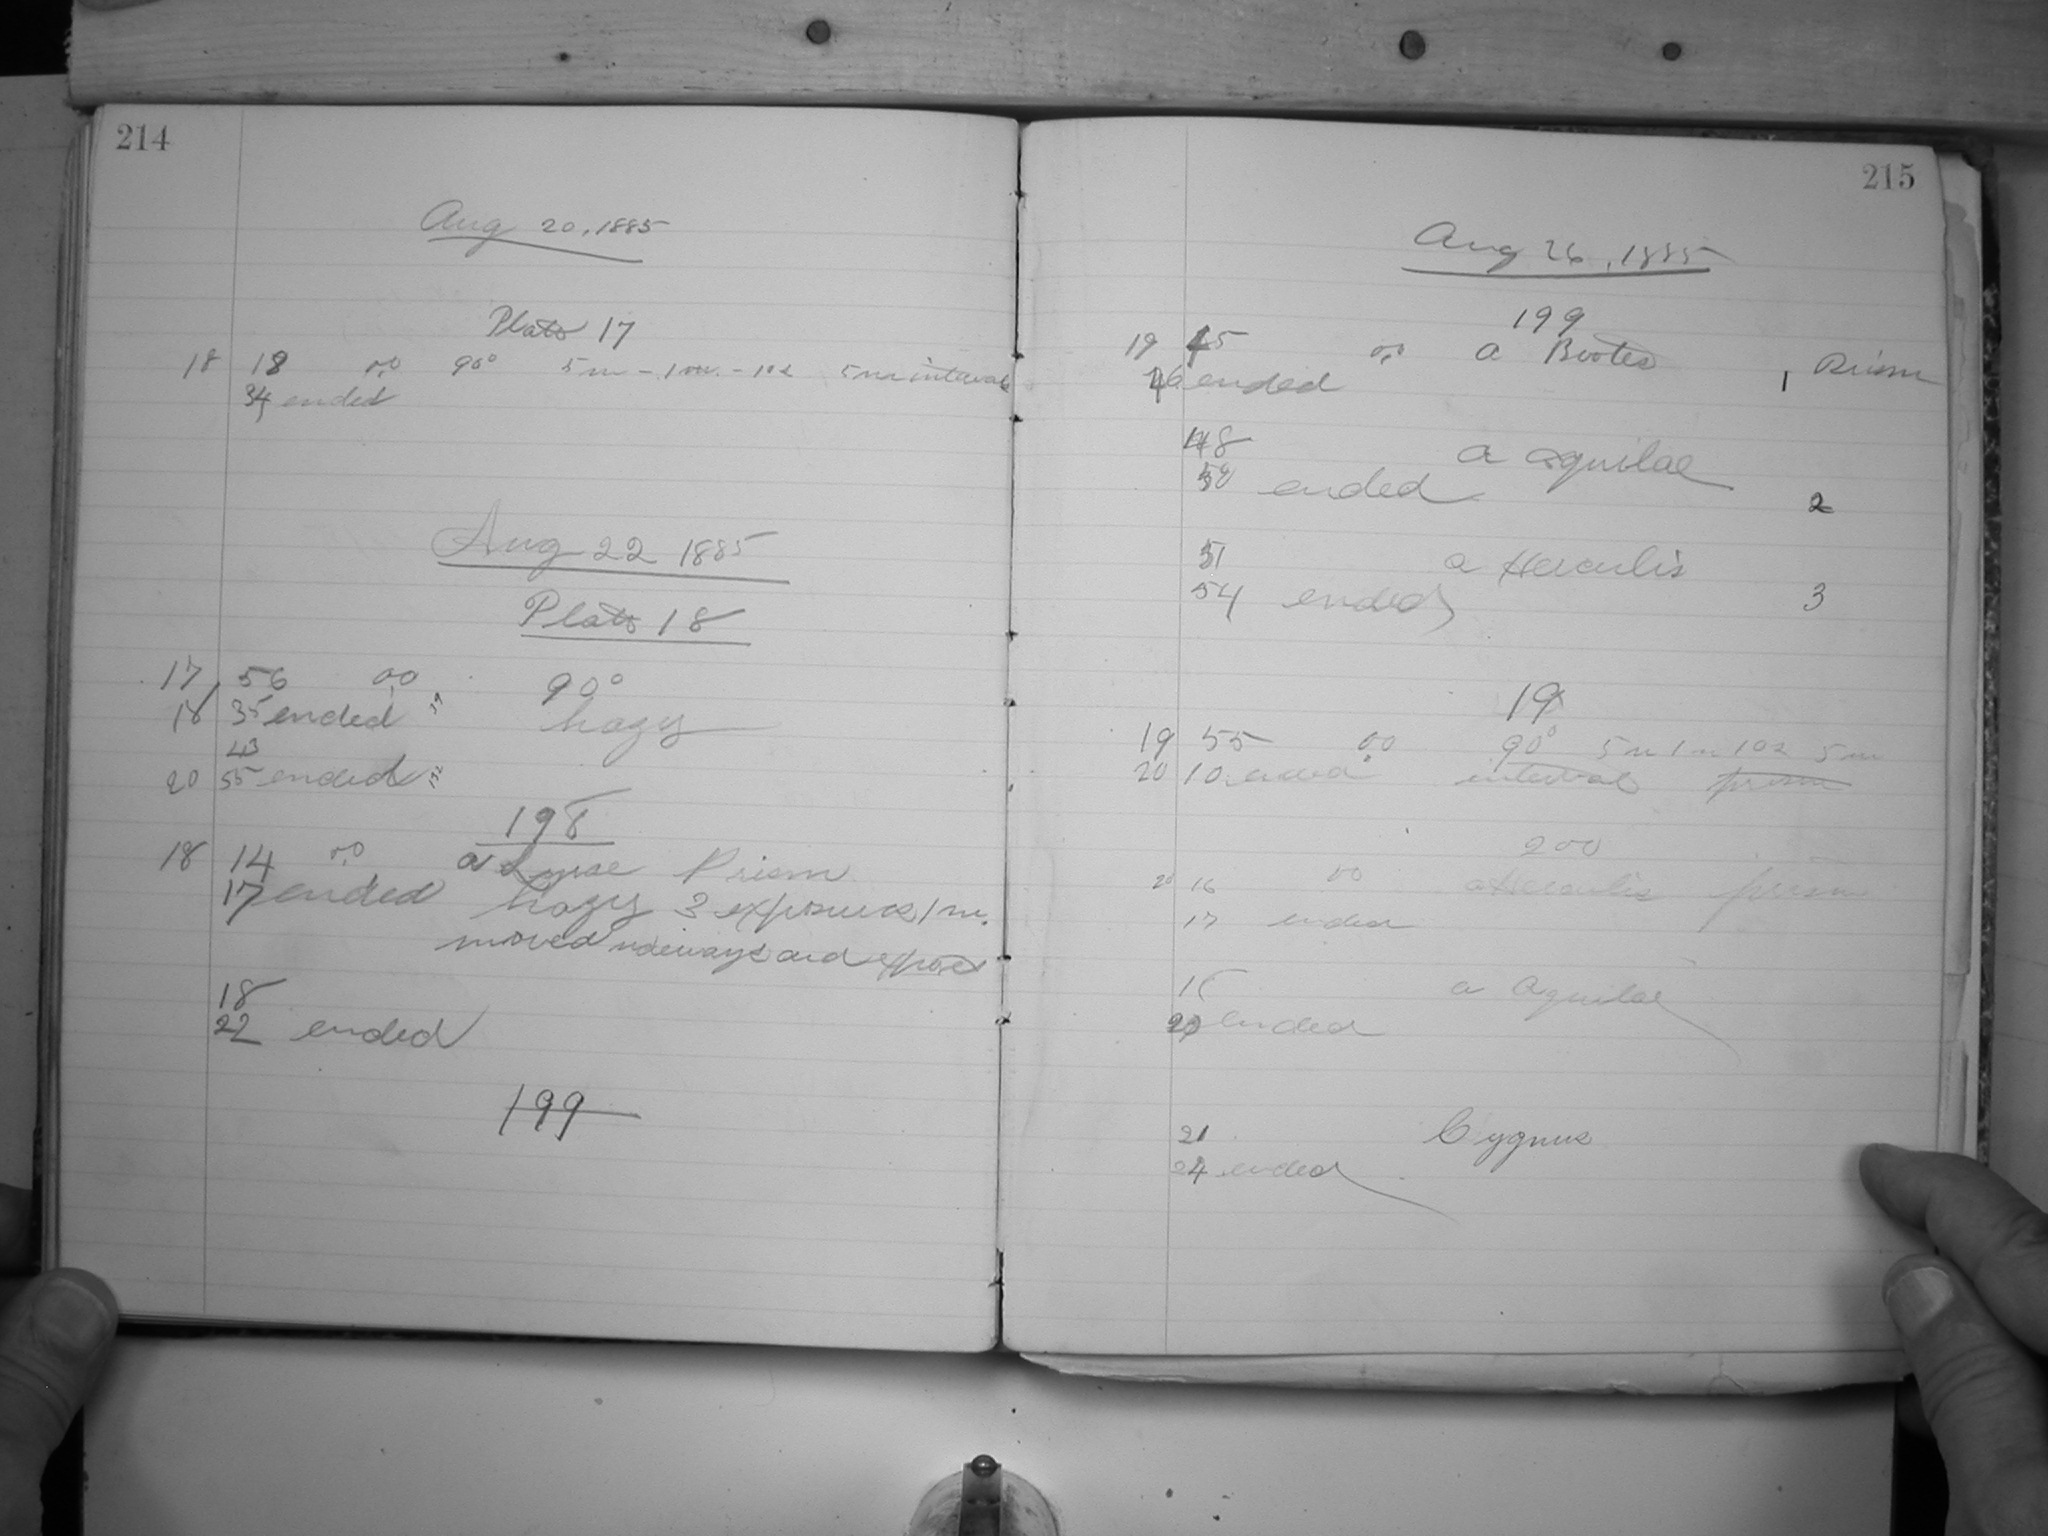 214
Aug 20, 1885
Plate 17
18 18 0.0 90° 5m - 1m - 10s 5m intervals
34 ended
Aug 22 1885
Plate 18
17 56 0.0 90°
18 35 ended hazy
43
20 55 ended
198
18 14 0.0 a Lyrae Prism
17 ended hazy 3 exposures 1 m.
moved sideways and exposed
18
22 ended
199
215
Aug 26, 1885
199
19 45 0.0 a Bootes Prism
46 ended 1
48 a aquilae
50 ended 2
51 a Herculis
54 ended 3
19
19 55 0.0 90° 5m 1m 10s 5m
20 10 ended interval prism
200
20 16 0.0 a Herculis prism
17 ended
18 a Aquilae
20 ended
21 Cygnus
24 ended